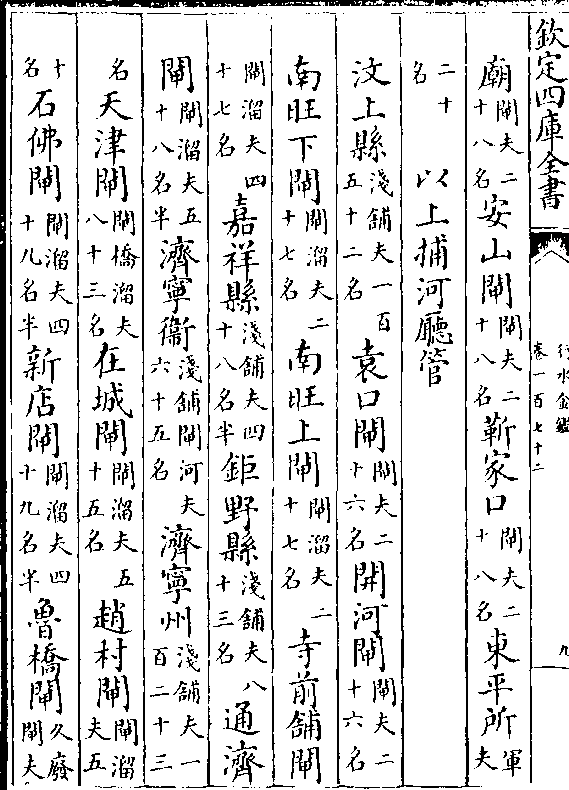 欽定四庫全書
行水金鑑
卷一百七十二
九
廟閘夫二十八名安山閘閘夫二十八名靳家口閘夫二十八名東平所軍夫
二十名以上捕河廳管
汶上縣淺舖夫一百五十二名袁口閘閘夫二十六名開河閘閘夫二十六名
南旺下閘閘溜夫二十七名南旺上閘閘溜夫二十七名寺前舖閘
閘溜夫四十七名嘉祥縣淺舖夫四十八名半鉅野縣淺舖夫八十三名通濟
閘閘溜夫五十八名半濟寧衞淺舖閘河夫六十五名濟寧州淺舖夫一百二十三
名天津閘閘橋溜夫八十三名在城閘閘溜夫五十五名趙村閘閘溜夫五
十名石佛閘閘溜夫四十九名半新店閘閘溜夫四十九名半魯橋閘久廢閘夫